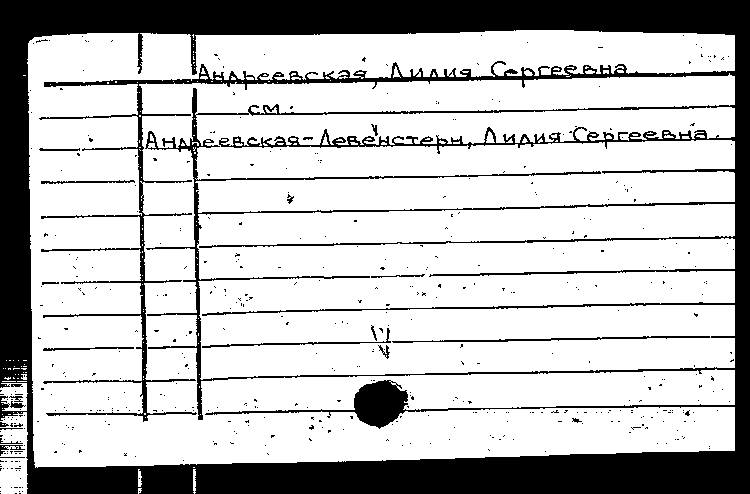 Андреевская, Лидия Сергеевна.
см.:
Андреевская-Левенстерн, Лидия Сергеевна.